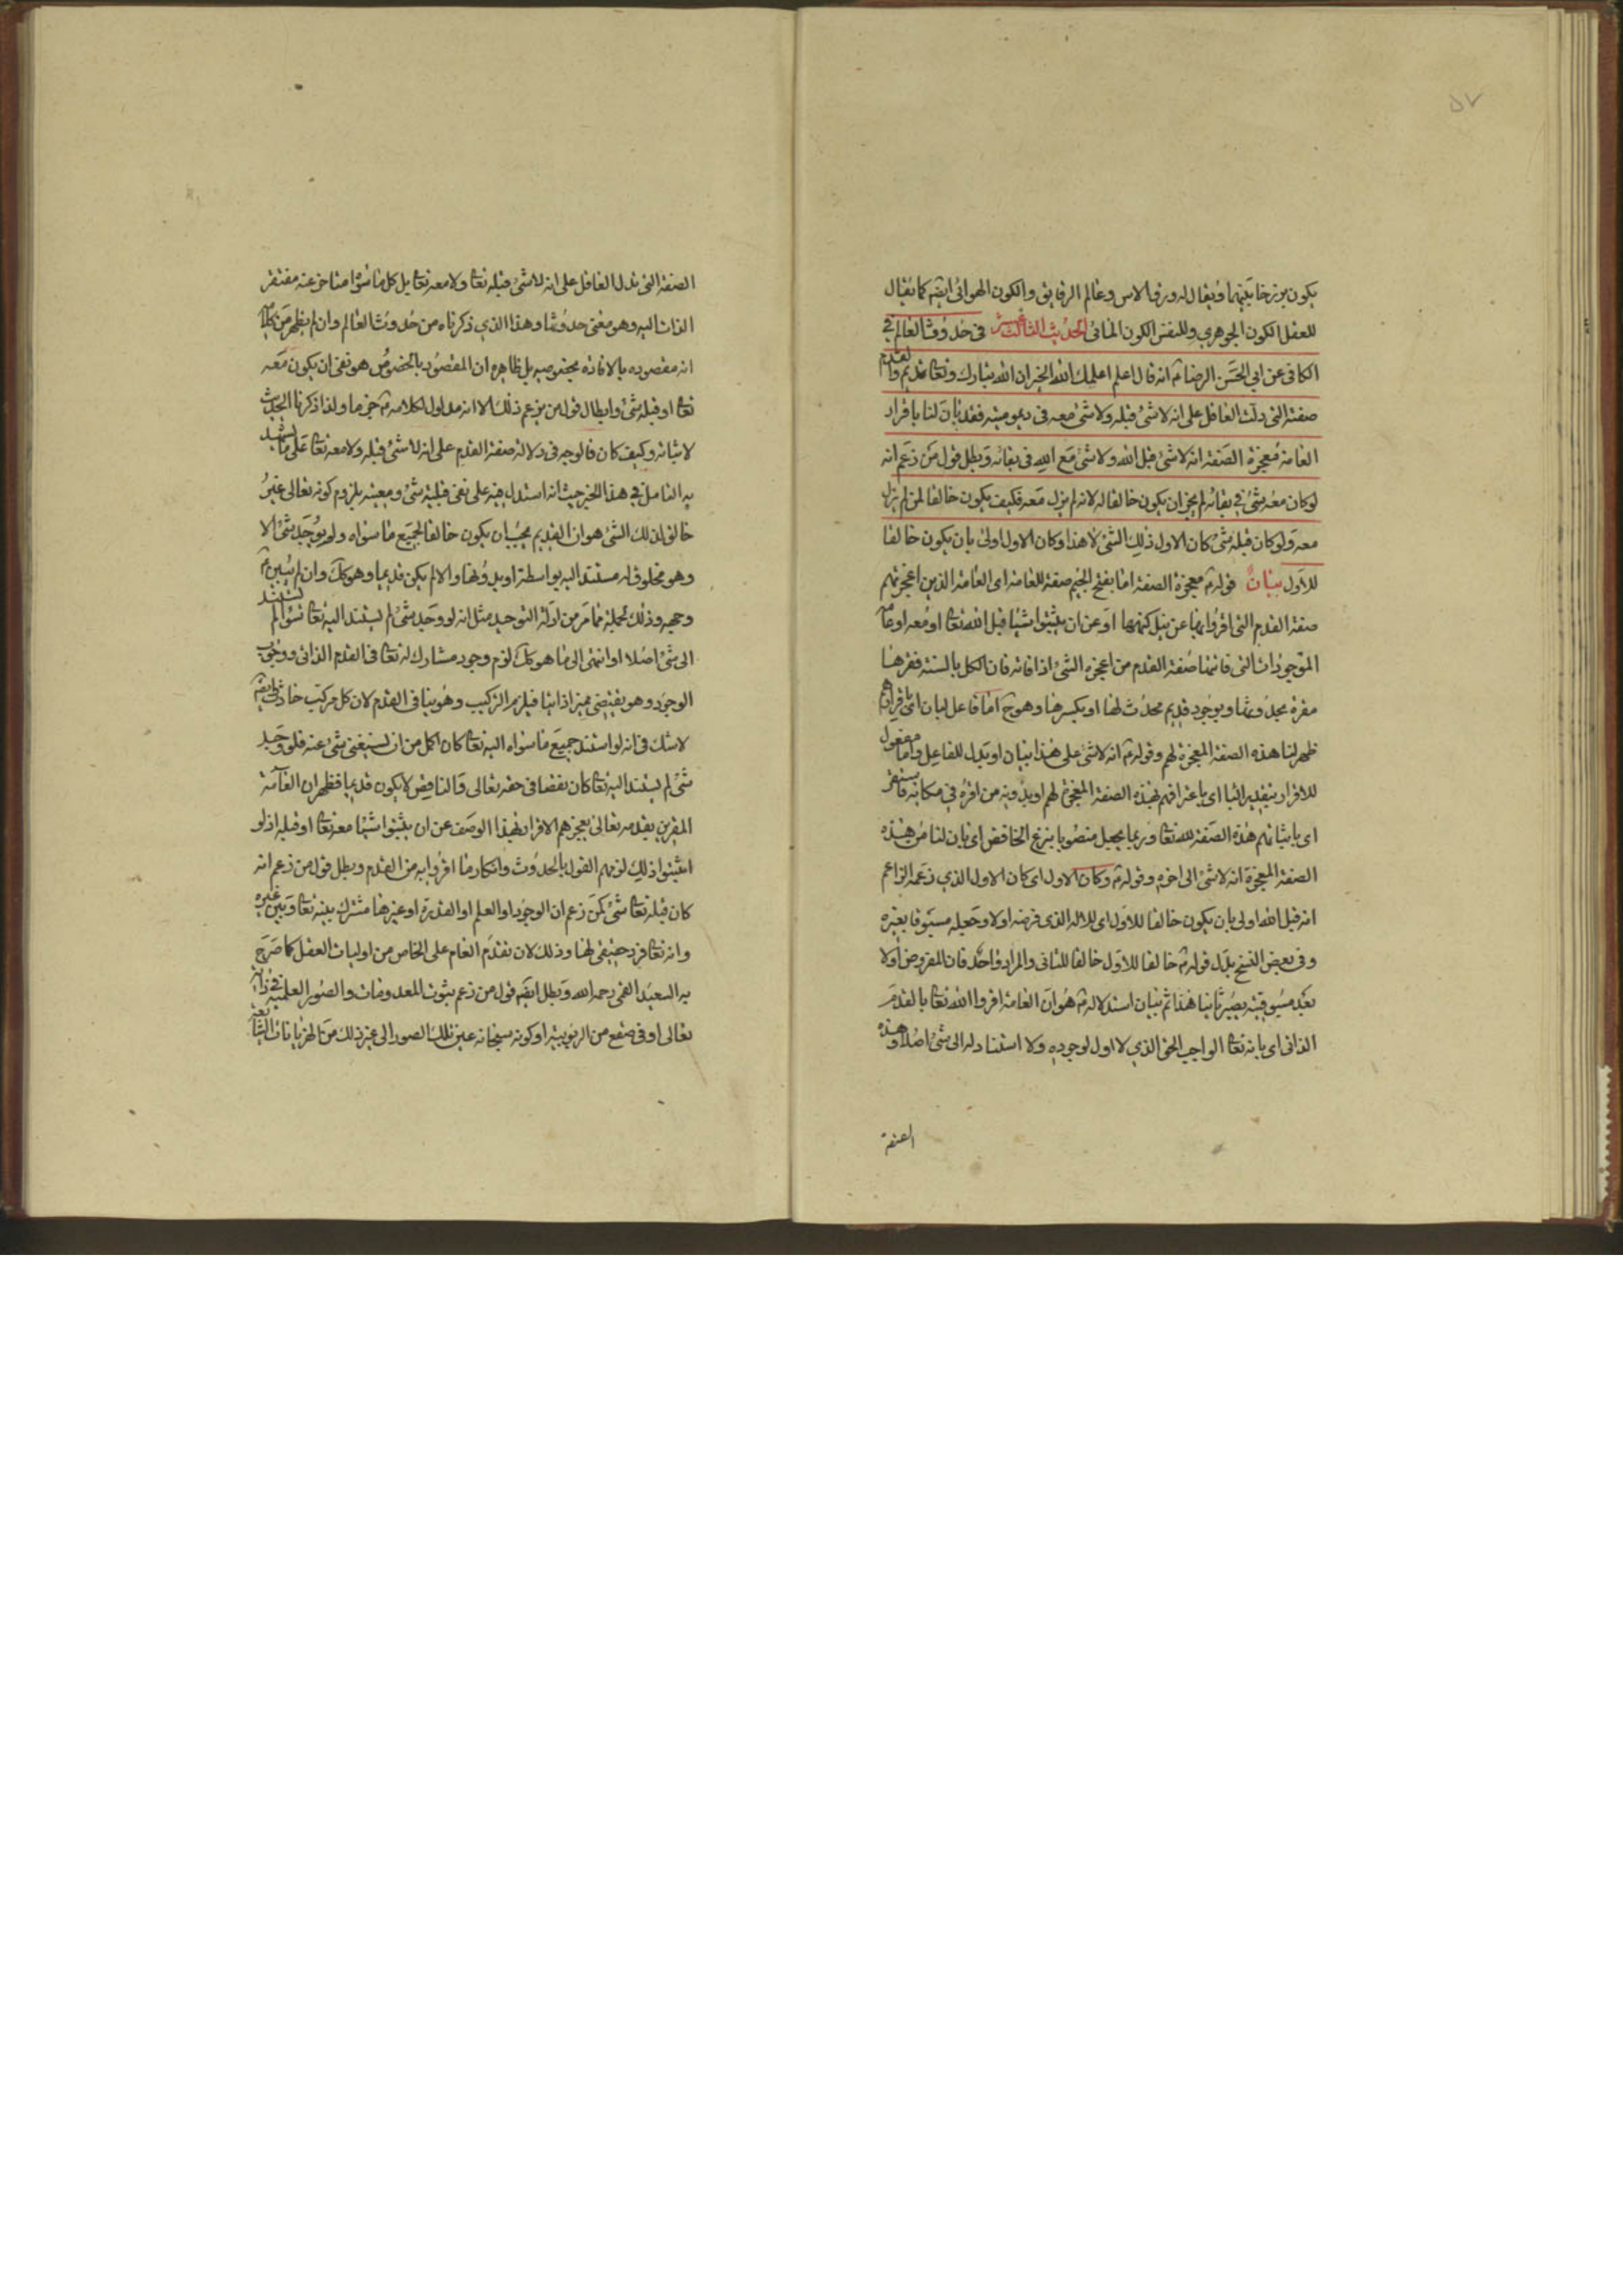 ۵۷
يكون برزخا بينهما ويقال له ورق الاس وعالم الرقايق والكون الهوائى ايضا كما يقال
للعقل الكون الجوهري وللنفس الكون المائى الحديث الثالث عشر فى حدوث العالم في
الكافى عن ابي الحسن الرضا ع انه قال اعلم اعلمك الله الخير ان الله تبارك وتعا قديم والقدم
صفته التى دلت العاقل على انه لا شئ قبله ولا شئ معه فى ديموميته فقد بان لنا باقرار
العامة معجزة الصفة انه لا شئ قبل الله ولا شئ مع الله فى بقائه وبطل قول من زعم انه
لو كان معه شئ في بقائه لم يجز ان يكون خالقا له لانه لم يزل معه فكيف يكون خالقا لمن لم يزل
معه ولو كان قبله شئ كان الاول ذلك الشئ لا هذا وكان الاول اولى بان يكون خالقا
للاول بيان قوله ع معجزة الصفة اما بفتح الجيم صفة للعامة اى العامة الذين اعجزتهم
صفة القدم التى اقروا بها عن نيل كنهها او عن ان يثبتوا شيئا قبل الله تعا او معه او
الموجودات التى فاتتها صفة القدم من اعجزه الشئ اذا فاته فان الكل بالسنة فقرها
مقرة بحدوثها وبوجود قديم محدث لها او بكسرها وهو ح اما فاعل لبان اى
ظهر لنا هذه الصفة المعجزة لهم وقوله ع انه لا شئ على هذا بيان او بدل للفاعل واما مفعول
للاقرار بتقدير الباء اى باعترافهم بهذه الصفة المعجزة لهم او بدونه من اقره في مكانه فاستقر
اى باثباتهم هذه الصفة لله تعا وربما يجعل منصوبا بنزع الخافض اى بان لنا من هذه
الصفة المعجزة انه لا شئ الى اخره وقوله ع وكان الاول اى كان الاول الذي زعمه الزاعم
انه قبل الله اولى بان يكون خالقا للاول اى للاله الذى فرضه اولا وجعله مسبوقا بغيره
وفى بعض النسخ بدل قوله ع خالقا للاول خالقا للثانى والمراد واحد فان المفروض اولا
بعد مسبوقيته يصير ثانيا هذا ثم بيان استدلاله ع هو ان العامة اقروا الله تعا بالقدم
الذاتى اى بانه تعا الواجب الحق الذي لا اول لوجوده ولا استناد له الى شئ اصلا وهذه
الصفة
الصفة التى تدل العاقل على انه لا شئ قبله تعا ولا معه تعا بل كل ما سواه متاخر عنه مفتقر
الذات اليه وهو معنى حدوثها وهذا الذي ذكرناه من حدوث العالم وان لم يظهر من كلامه
انه مقصوده بالافادة بخصوصه بل ظاهره ان المقصود بالخصوص هو نفى ان يكون معه
تعا او قبله شئ وابطال قول من يزعم ذلك الا انه مدلول لكلامه ع جزما ولذا ذكرنا الحديث
لاثباته وكيف كان فالوجه فى دلالة صفة القدم على انه لا شئ قبله ولا معه تعا على ما يشهد
به التامل في هذا الخبر حيث انه استدل فيه على نفى قبلية شئ ومعيته بلزوم كونه تعالى غير
خالق لذلك الشئ هو ان القديم يجب ان يكون خالقا لجميع ما سواه ولو يوجد شئ الا
وهو مخلوق له مستند اليه بواسطة او بدونها والا لم يكن قديما وهو كك وان لم يبين ع
وجهه وذلك بجملة ما مر من ادلة التوحيد مثل انه لو وجد شئ لم يستند اليه تعا سواء لم يستند
الى شئ اصلا او انتهى الى ما هو كك لزم وجود مشارك له تعا فى القدم الذاتى ووجوب
الوجود وهو يقتضى مميزا ذاتيا فيلزم التركيب وهو ينافى القدم لان كل مركب حادث وايضا
لا شك فى انه لو استند جميع ما سواه اليه تعا كان اكمل من ان يستغنى شئ عنه فلو وجد
شئ لم يستند اليه تعا كان نقصا فى حقه تعالى والناقص لا يكون قديما فظهر ان العامة
المقرين بقدمه تعالى يعجزهم الاقرار بهذا الوصف عن ان يثبتوا شيئا معه تعا او قبله اذ لو
اثبتوا ذلك لزمهم القول بالحدوث وانكار ما اقروا به من القدم وبطل قول من زعم انه
كان قبله تعا شئ كمن زعم ان الوجود او العلم او القدرة او غيرها مشترك بينه تعا وبين غيره
وانه تعا فرد حقيقى لها وذلك لان تقدم العام على الخاص من اوليات العقل كما صرح
به السعيد القمى رحمه الله وبطل ايضا قول من زعم بثبوت المعدومات والصور العلمية فى ذاته
تعالى او فى صقع من الربوبية او كونه سبحانه عين تلك الصور الى غير ذلك من الهذيانات